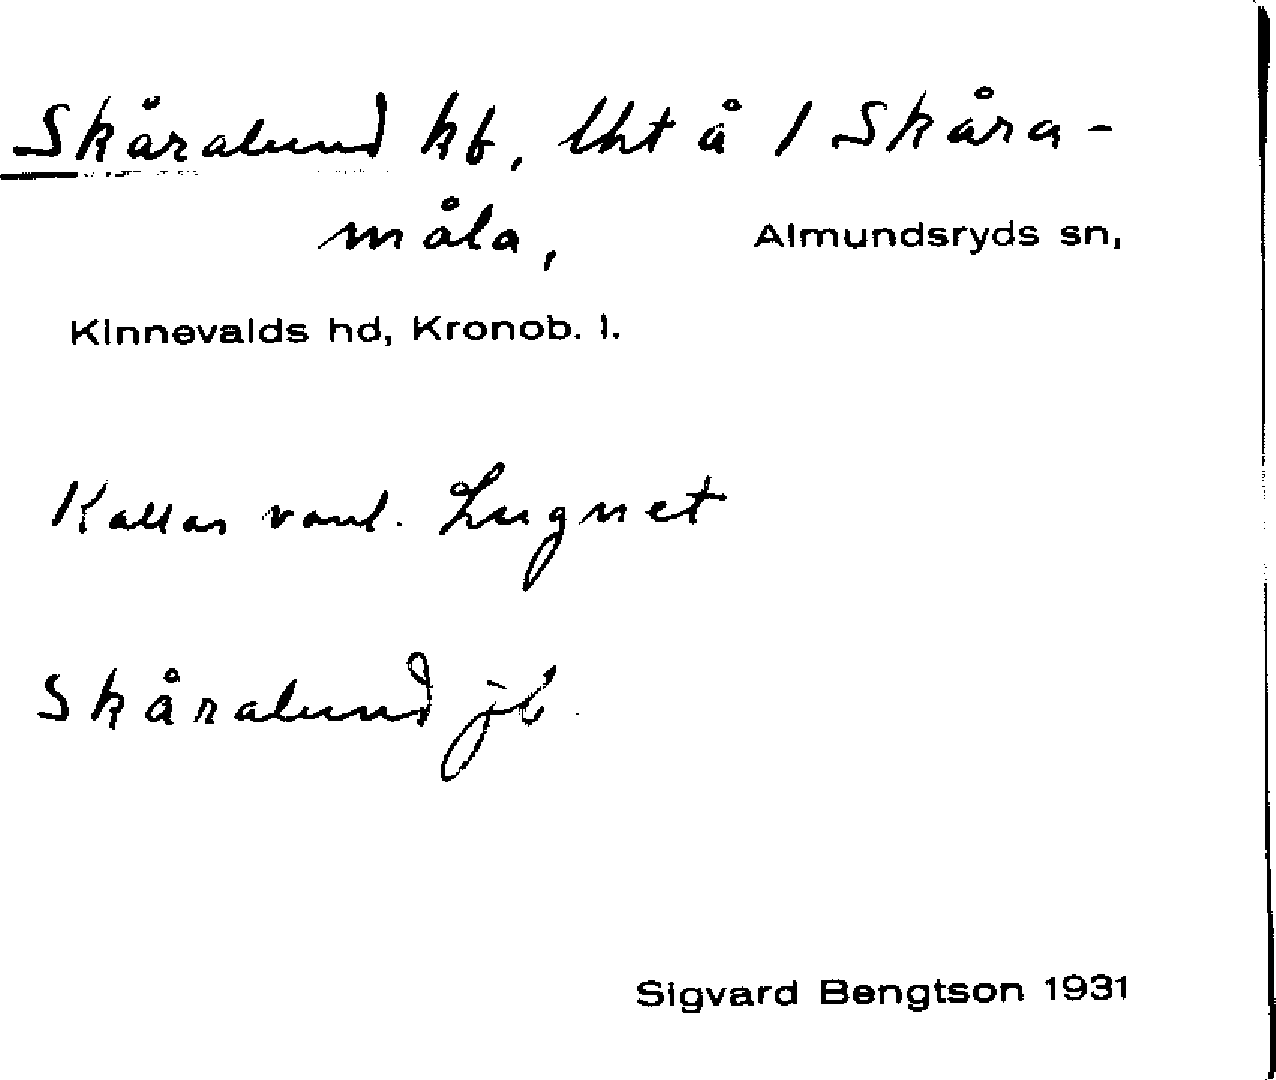 Skåralund kb, lht å 1 Skåra-
måla, Almundsryds sn,
Kinnevalds hd, Kronob. l.
Kallas vanl. Lugnet
Skåralund jb.
Sigvard Bengtson 1931